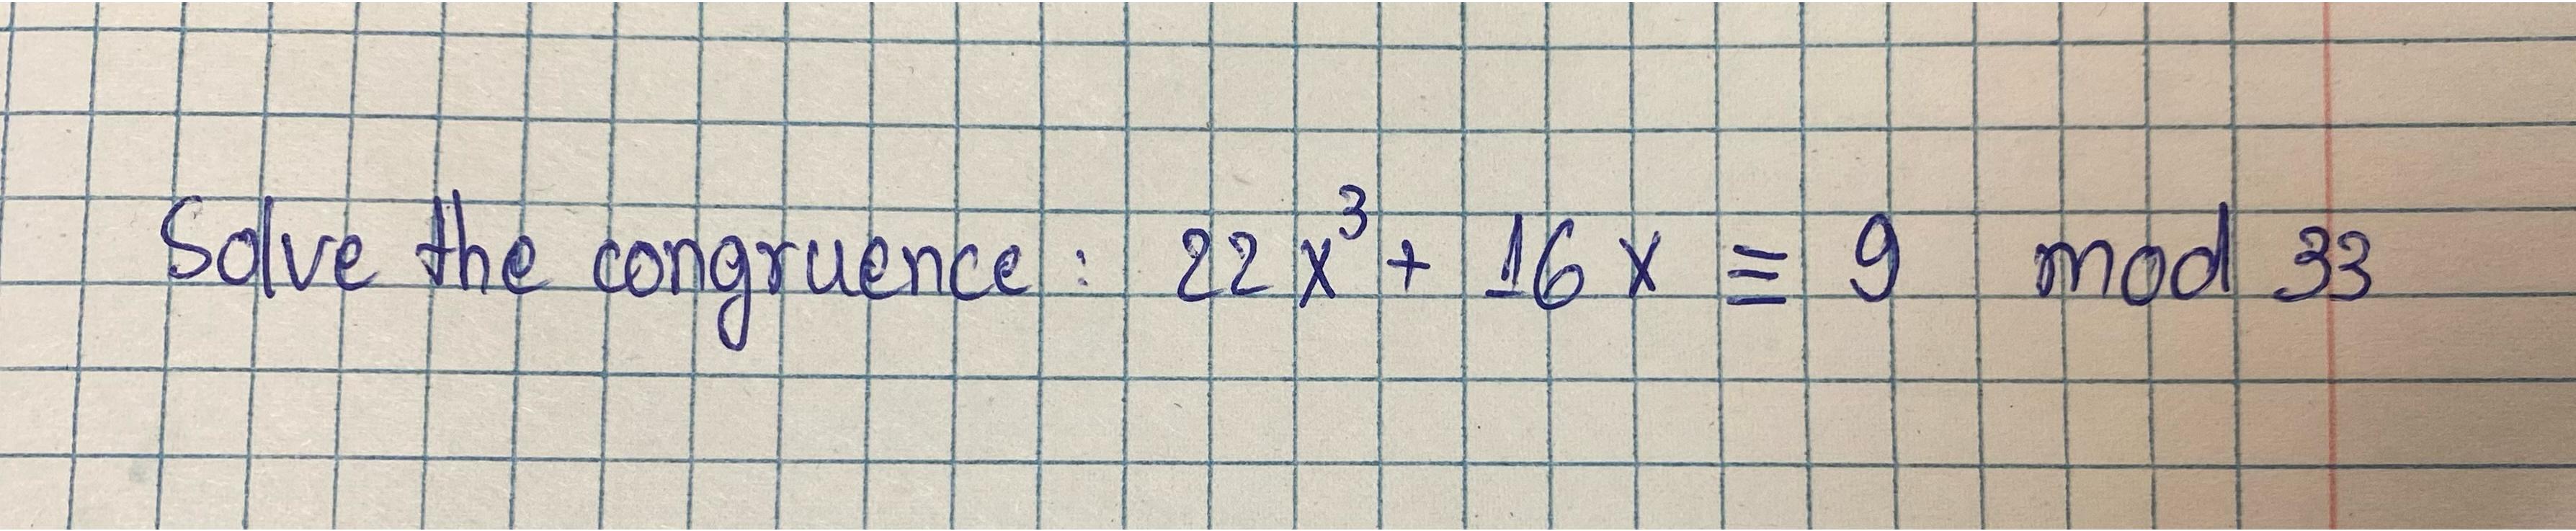 Solve the congruence: 22x³ + 16x ≡ 9 mod 33